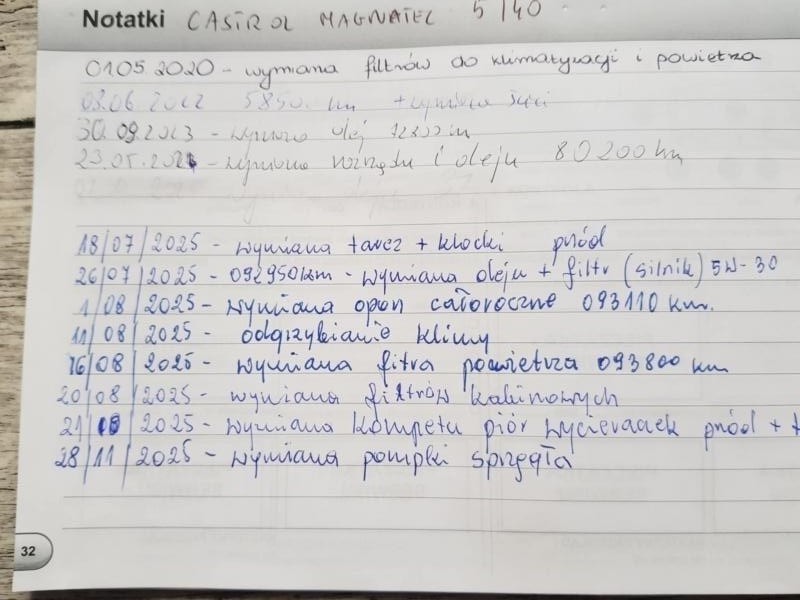 Notatki CASTROL MAGNATEC 5/40
01.05.2020 - wymiana filtrów do klimatyzacji i powietrza
5850. km + wymiana
30.09.2023 - olej
23.05.202 - wymiana rozrządu i oleju 80200 km
18/07/2025 - wymiana tarcz + klocki przód
26/07/2025 - 092950km - wymiana oleju + filtr (silnik) 5W-30
1/08/2025 - wymiana opon całoroczne 093110 km.
11/08/2025 - odgrzybianie klimy
16/08/2025 - wymiana fitra powietrza 093800 km
20/08/2025 - wymiana filtrów kabinowych
21/10/2025 - wymiana kompetu piór wycieraczek przód + t
28/11/2025 - wymiana pompki sprzęgła
32